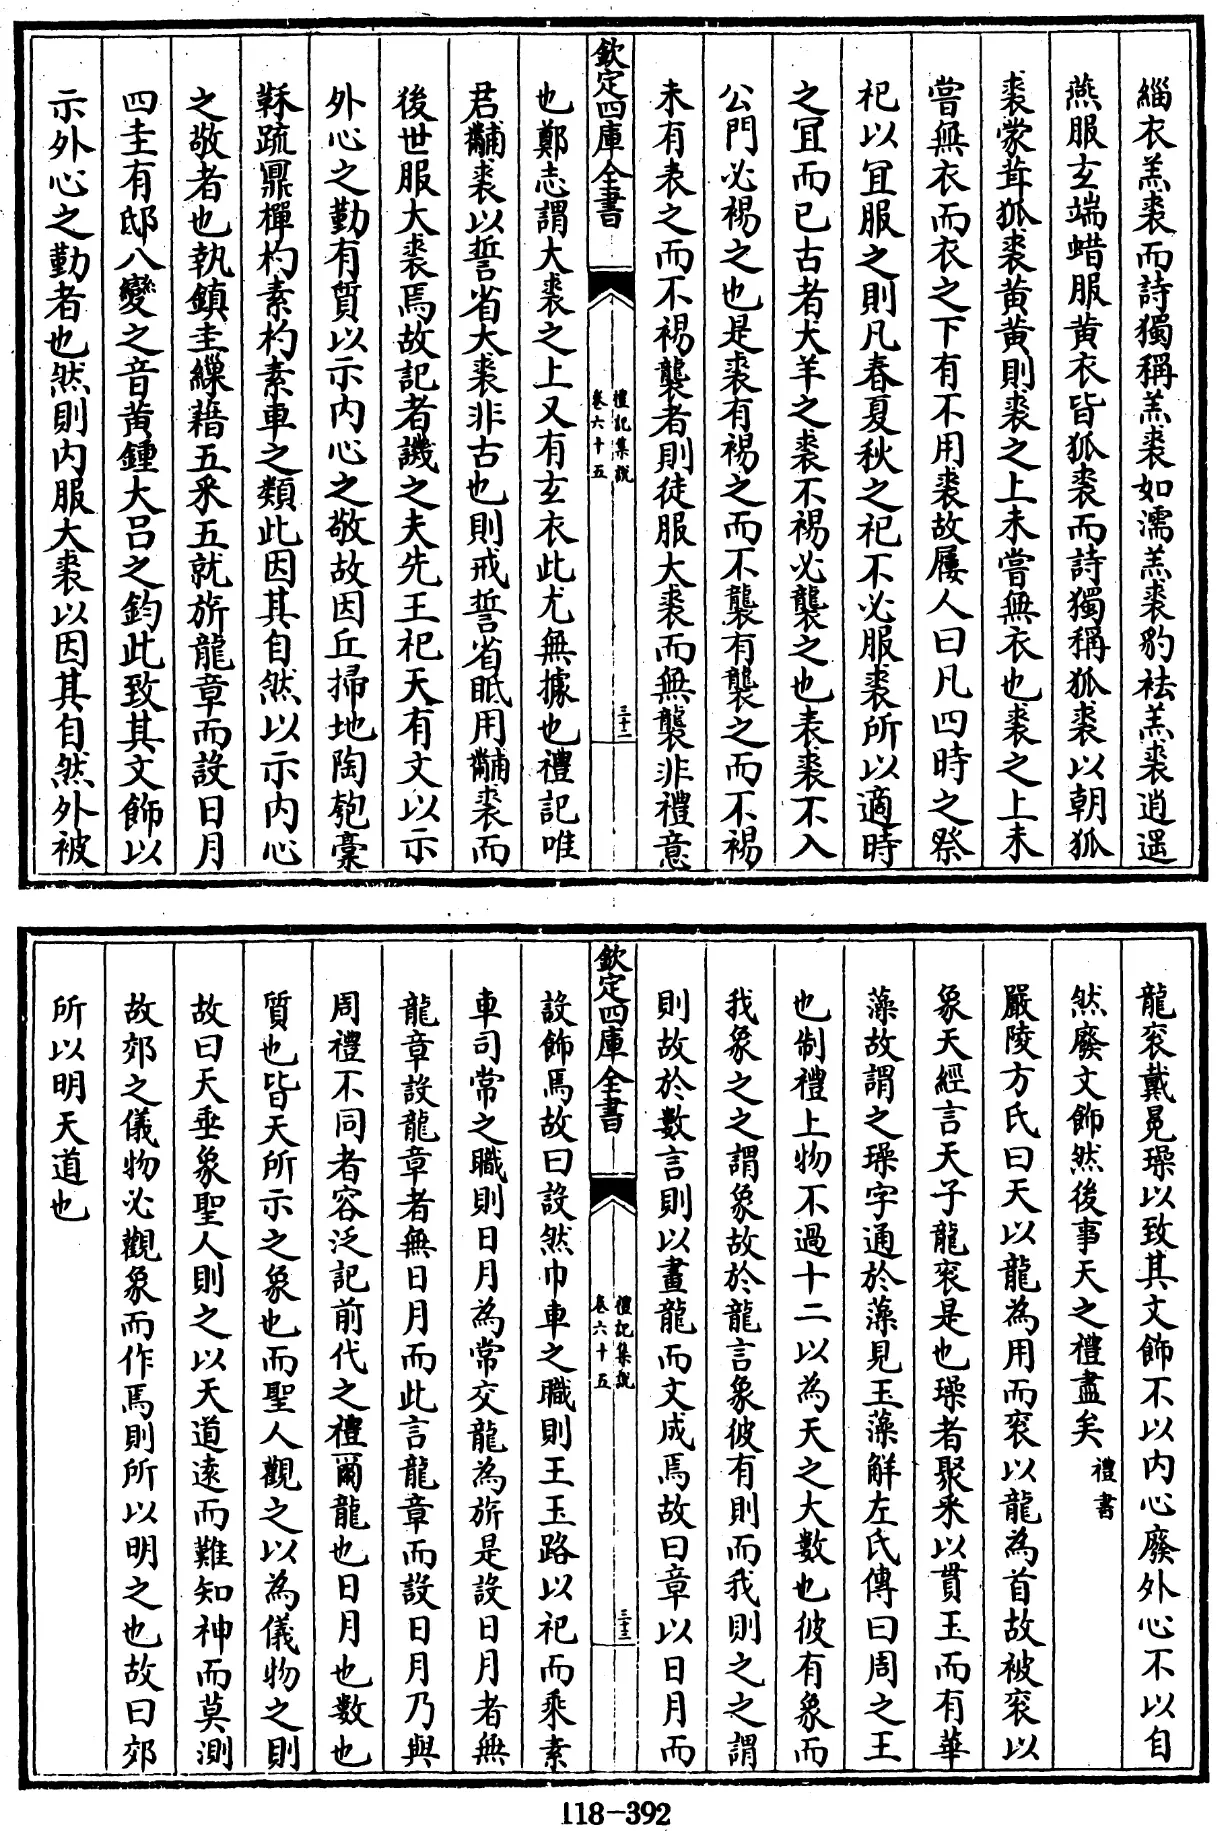 緇衣羔裘而詩獨稱羔裘如濡羔裘豹袪羔裘逍遥
燕服玄端蜡服黄衣皆狐裘而詩獨稱狐裘以朝狐
裘蒙茸狐裘黄黄則裘之上未嘗無衣也裘之上未
嘗無衣而衣之下有不用裘故屨人曰凡四時之祭
祀以宜服之則凡春夏秋之祀不必服裘所以適時
之宜而已古者犬羊之裘不裼必襲之也表裘不入
公門必裼之也是裘有裼之而不襲有襲之而不裼
未有表之而不裼襲者則徒服大裘而無襲非禮意
欽定四庫全書
禮記集說
卷六十五
三十二
也鄭志謂大裘之上又有玄衣此尤無據也禮記唯
君黼裘以誓省大裘非古也則戒誓省眡用黼裘而
後世服大裘焉故記者譏之夫先王祀天有文以示
外心之勤有質以示内心之敬故因丘掃地陶匏藁
鞂疏鼏樿杓素杓素車之類此因其自然以示内心
之敬者也執鎮圭繅藉五采五就旂龍章而設日月
四圭有邸八變之音黄鍾大吕之鈞此致其文飾以
示外心之勤者也然則内服大裘以因其自然外被
龍衮戴冕璪以致其文飾不以内心廢外心不以自
然廢文飾然後事天之禮盡矣禮書
嚴陵方氏曰天以龍為用而衮以龍為首故被衮以
象天經言天子龍衮是也璪者聚采以貫玉而有華
藻故謂之璪字通於藻見玉藻解左氏傳曰周之王
也制禮上物不過十二以為天之大數也彼有象而
我象之之謂象故於龍言象彼有則而我則之之謂
則故於數言則以畫龍而文成焉故曰章以日月而
欽定四庫全書
禮記集說
卷六十五
三十三
設飾焉故曰設然巾車之職則王玉路以祀而乘素
車司常之職則日月為常交龍為旂是設日月者無
龍章設龍章者無日月而此言龍章而設日月乃與
周禮不同者容泛記前代之禮爾龍也日月也數也
質也皆天所示之象也而聖人觀之以為儀物之則
故曰天垂象聖人則之以天道逺而難知神而莫測
故郊之儀物必觀象而作焉則所以明之也故曰郊
所以明天道也
118-392